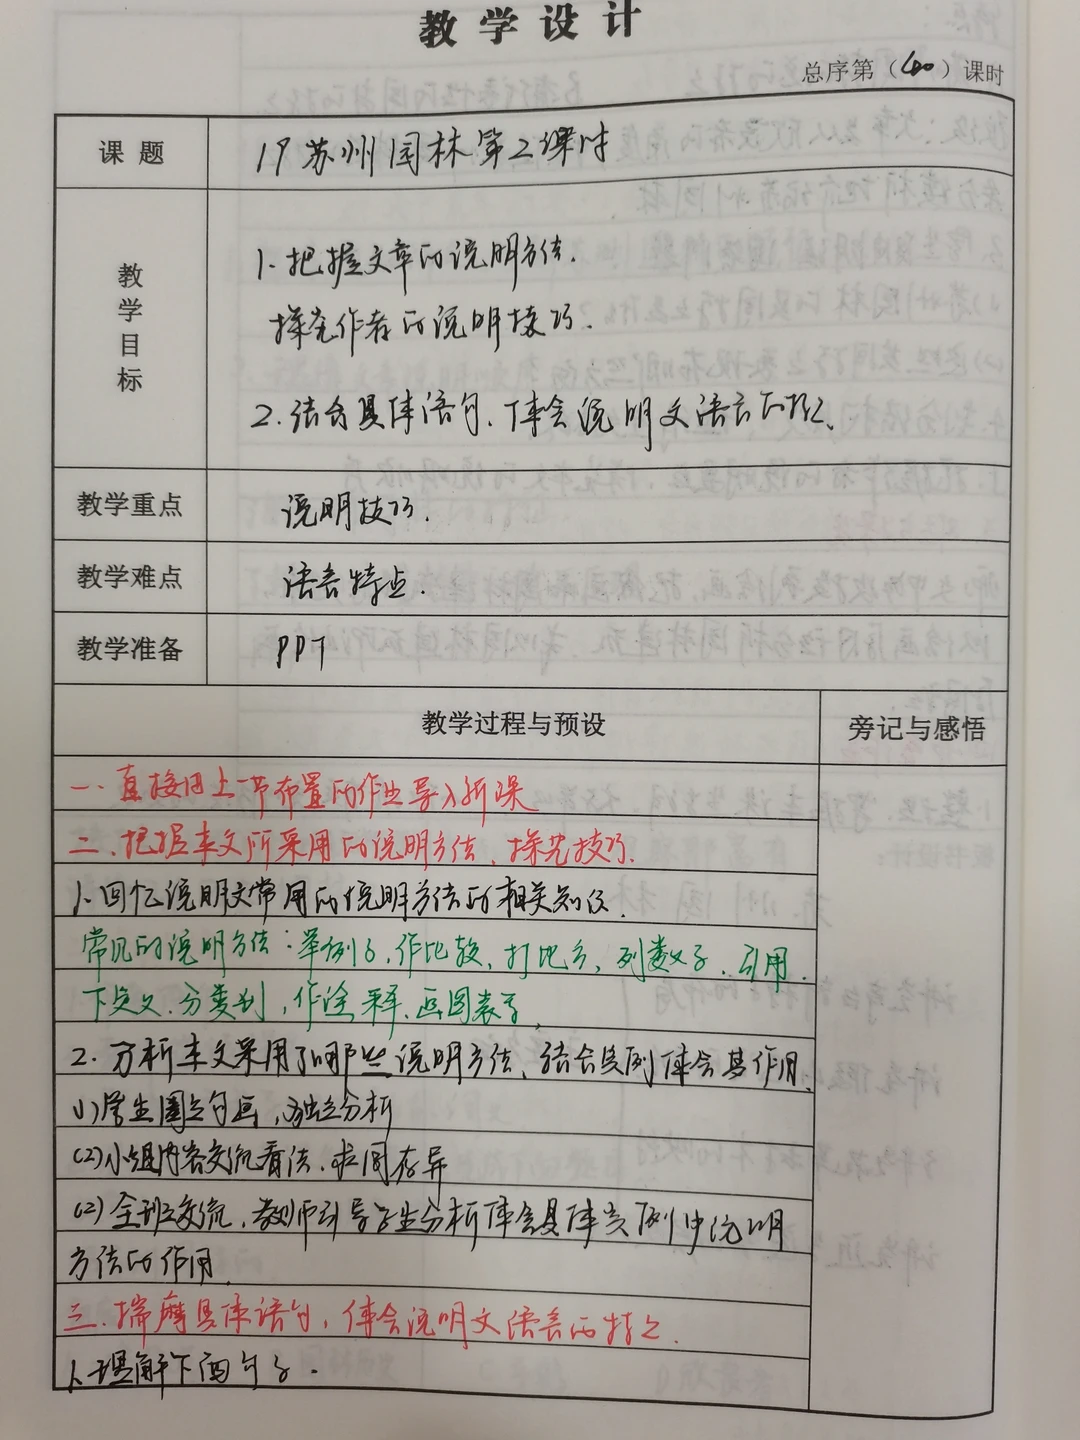 教学设计
总序第（40）课时
课题
19 苏州园林第2课时
教学目标
1. 把握文章的说明方法.
探究作者的说明技巧.
2. 结合具体语句、体会说明文语言的特点.
教学重点
说明技巧.
教学难点
语言特点.
教学准备
PPT
教学过程与预设
旁记与感悟
一. 直接由上一节布置的作业导入新课
二. 把握本文所采用的说明方法、探究技巧.
1. 回忆说明文常用的说明方法的相关知识.
常见的说明方法：举例子，作比较、打比方、列数字、引用、
下定义、分类别，作诠释、画图表等.
2. 分析本文采用了哪些说明方法、结合实例体会其作用.
(1)学生圈点勾画，独立分析
(2)小组内容交流看法、求同存异
(2)全班交流，教师引导学生分析体会具体实例中说明
方法的作用.
三. 揣摩具体语句，体会说明文语言的特点.
1. 理解下面句子.